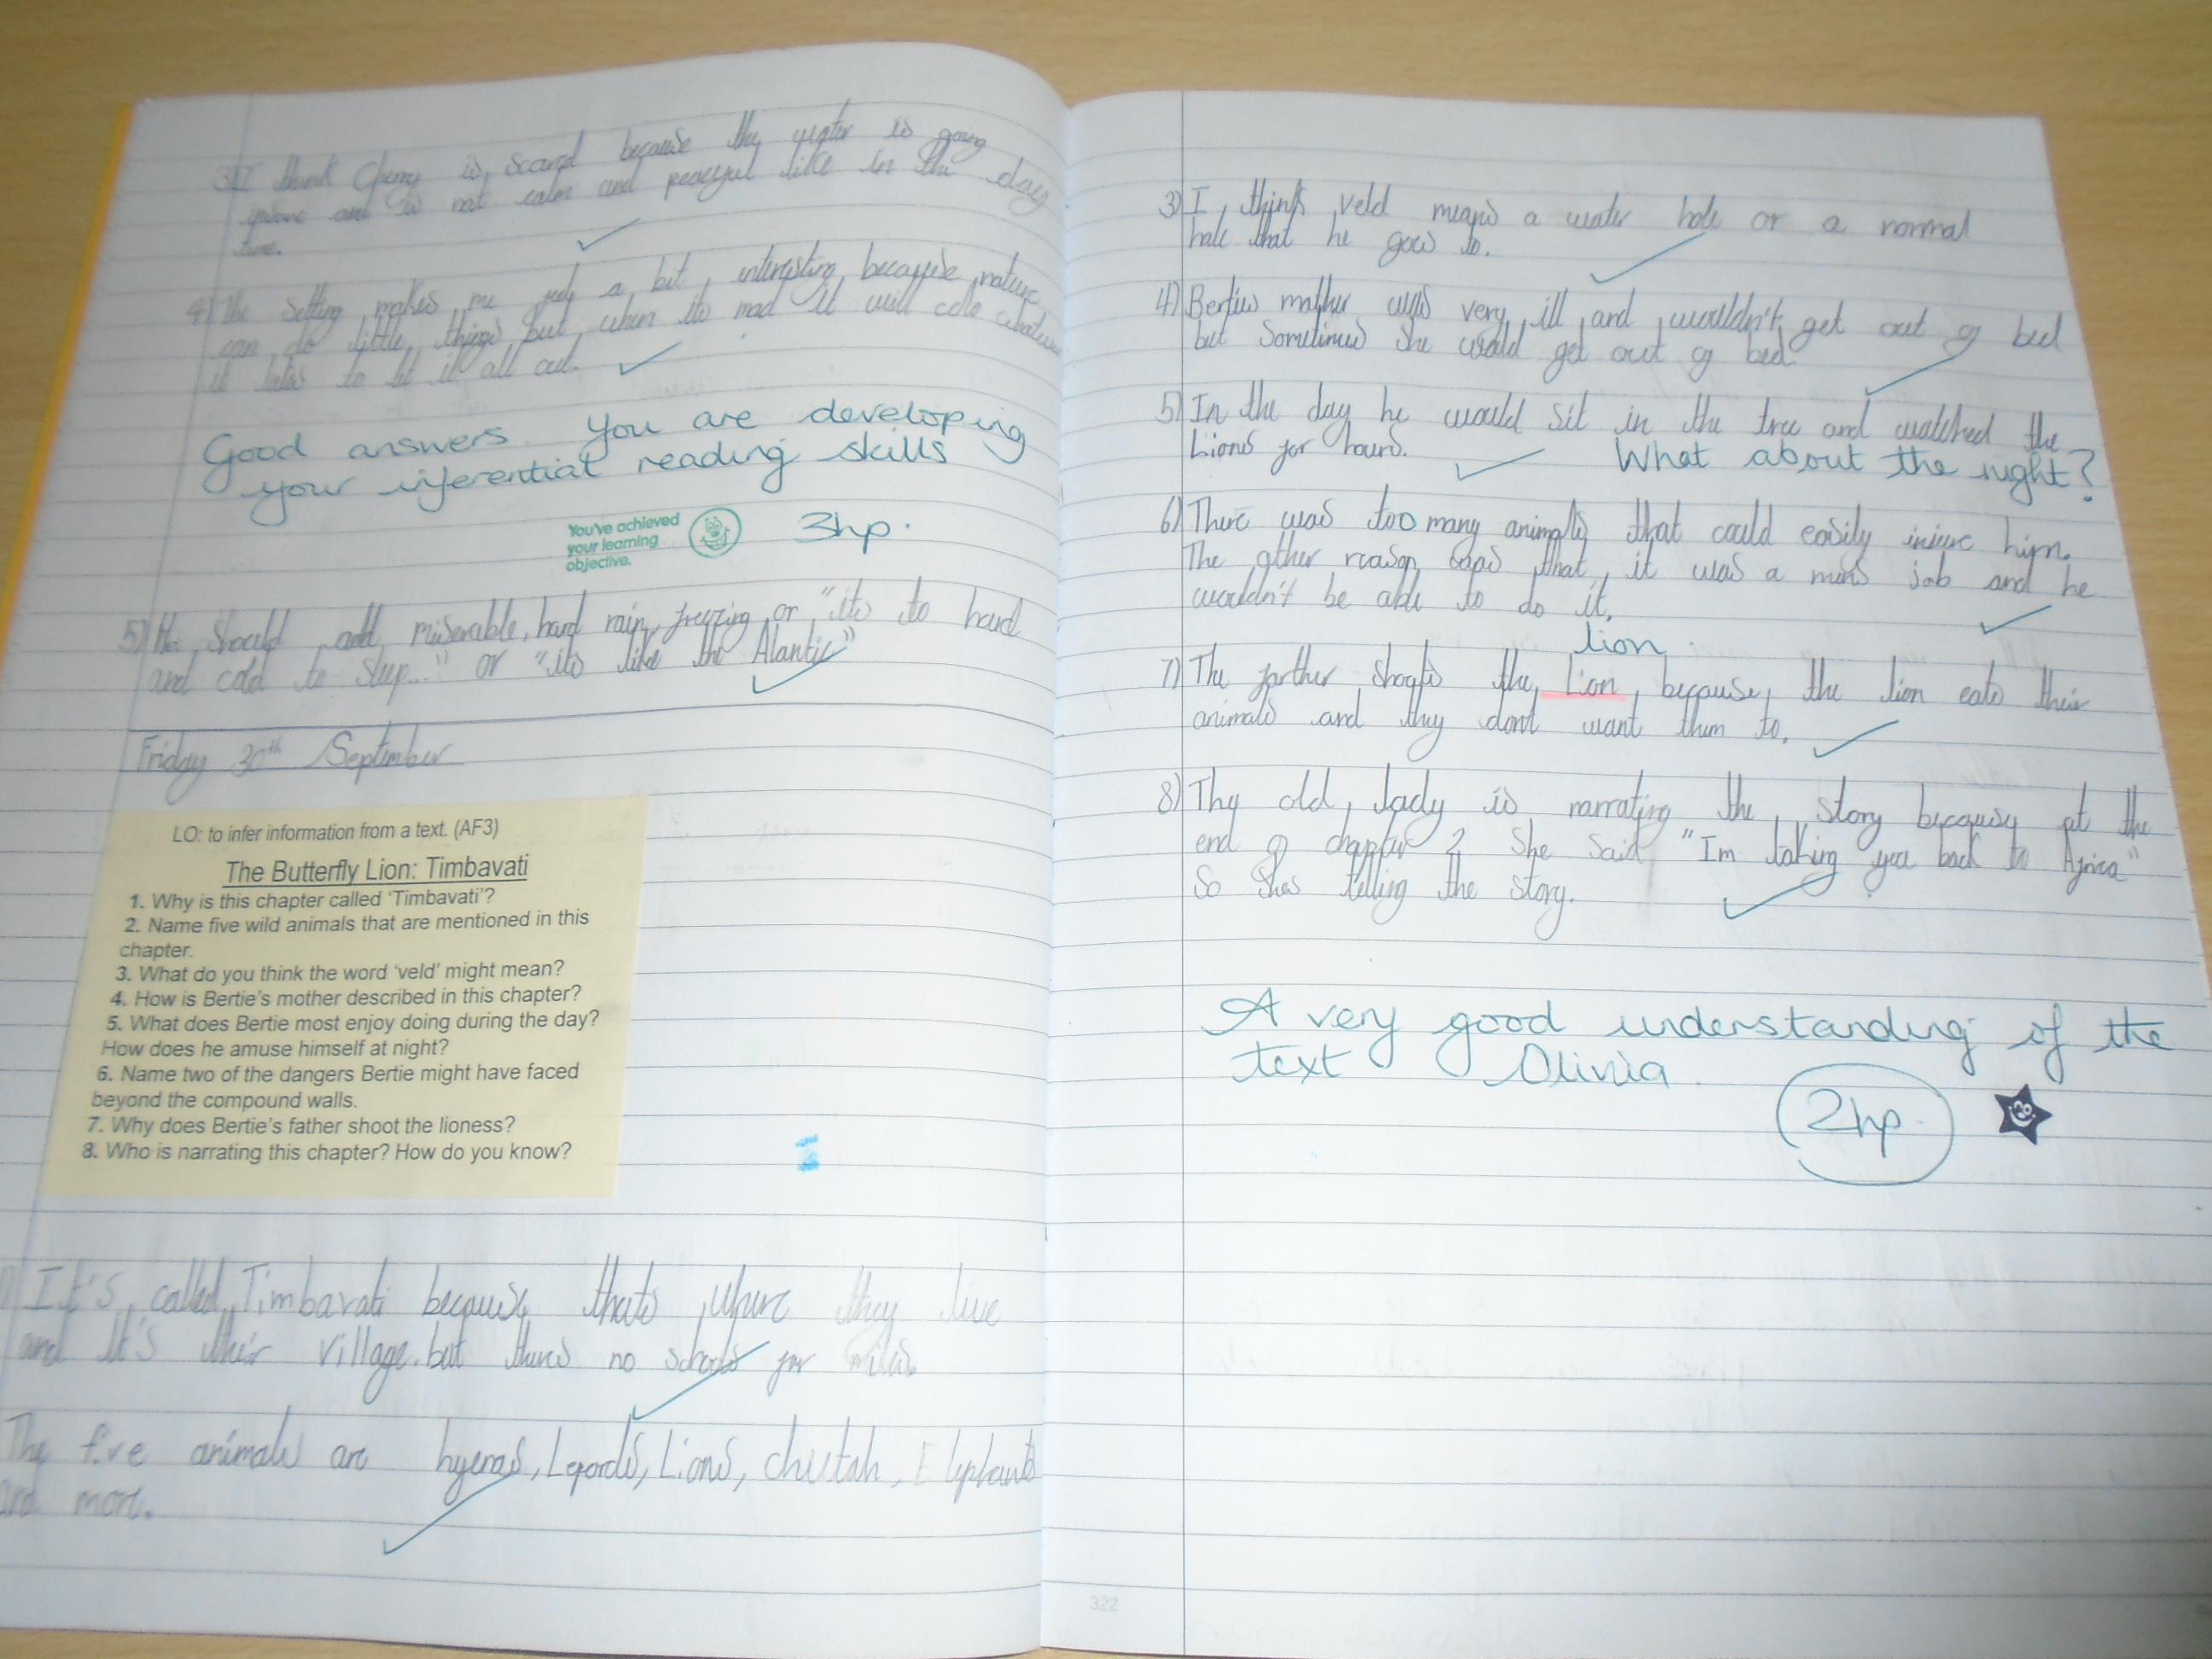 3) I think Cherry is scared because the water is going
and is not calm and peaceful like in the day
time.
4) The setting makes me feel a bit interesting because nature
can do little things but when its mad it will
it to let it all out.
Good answers. You are developing
your inferential reading skills
You've achieved
your learning
objective.
3hp.
5) He should add miserable, hard rain, freezing or "its to hard
and cold to sleep..." or "its like the Alantic"
Friday 30th September
LO: to infer information from a text. (AF3)
The Butterfly Lion: Timbavati
1. Why is this chapter called 'Timbavati'?
2. Name five wild animals that are mentioned in this
chapter.
3. What do you think the word 'veld' might mean?
4. How is Bertie's mother described in this chapter?
5. What does Bertie most enjoy doing during the day?
How does he amuse himself at night?
6. Name two of the dangers Bertie might have faced
beyond the compound walls.
7. Why does Bertie's father shoot the lioness?
8. Who is narrating this chapter? How do you know?
1) It's called Timbavati because thats where they live
and It's their village. but theres no schools for miles.
The five animals are hyenas, Lepords, Lions, cheetah, Elephants
and more.
3) I think veld means a water hole or a normal
hole that he goes to.
4) Berties mother was very ill and wouldn't get out of bed
but sometimes she would get out of bed
5) In the day he would sit in the tree and watched the
Lions for hours.
What about the night?
6) There was too many animals that could easily injure him.
The other reason was that it was a mans job and he
wouldn't be able to do it.
lion
7) The farther shoots the Lion because the lion eats their
animals and they dont want them to.
8) Thy old lady is narrating the story because at the
end of chapter 2 she said "Im taking you back to Africa"
So shes telling the story.
A very good understanding of the
text Olivia.
2hp.
322